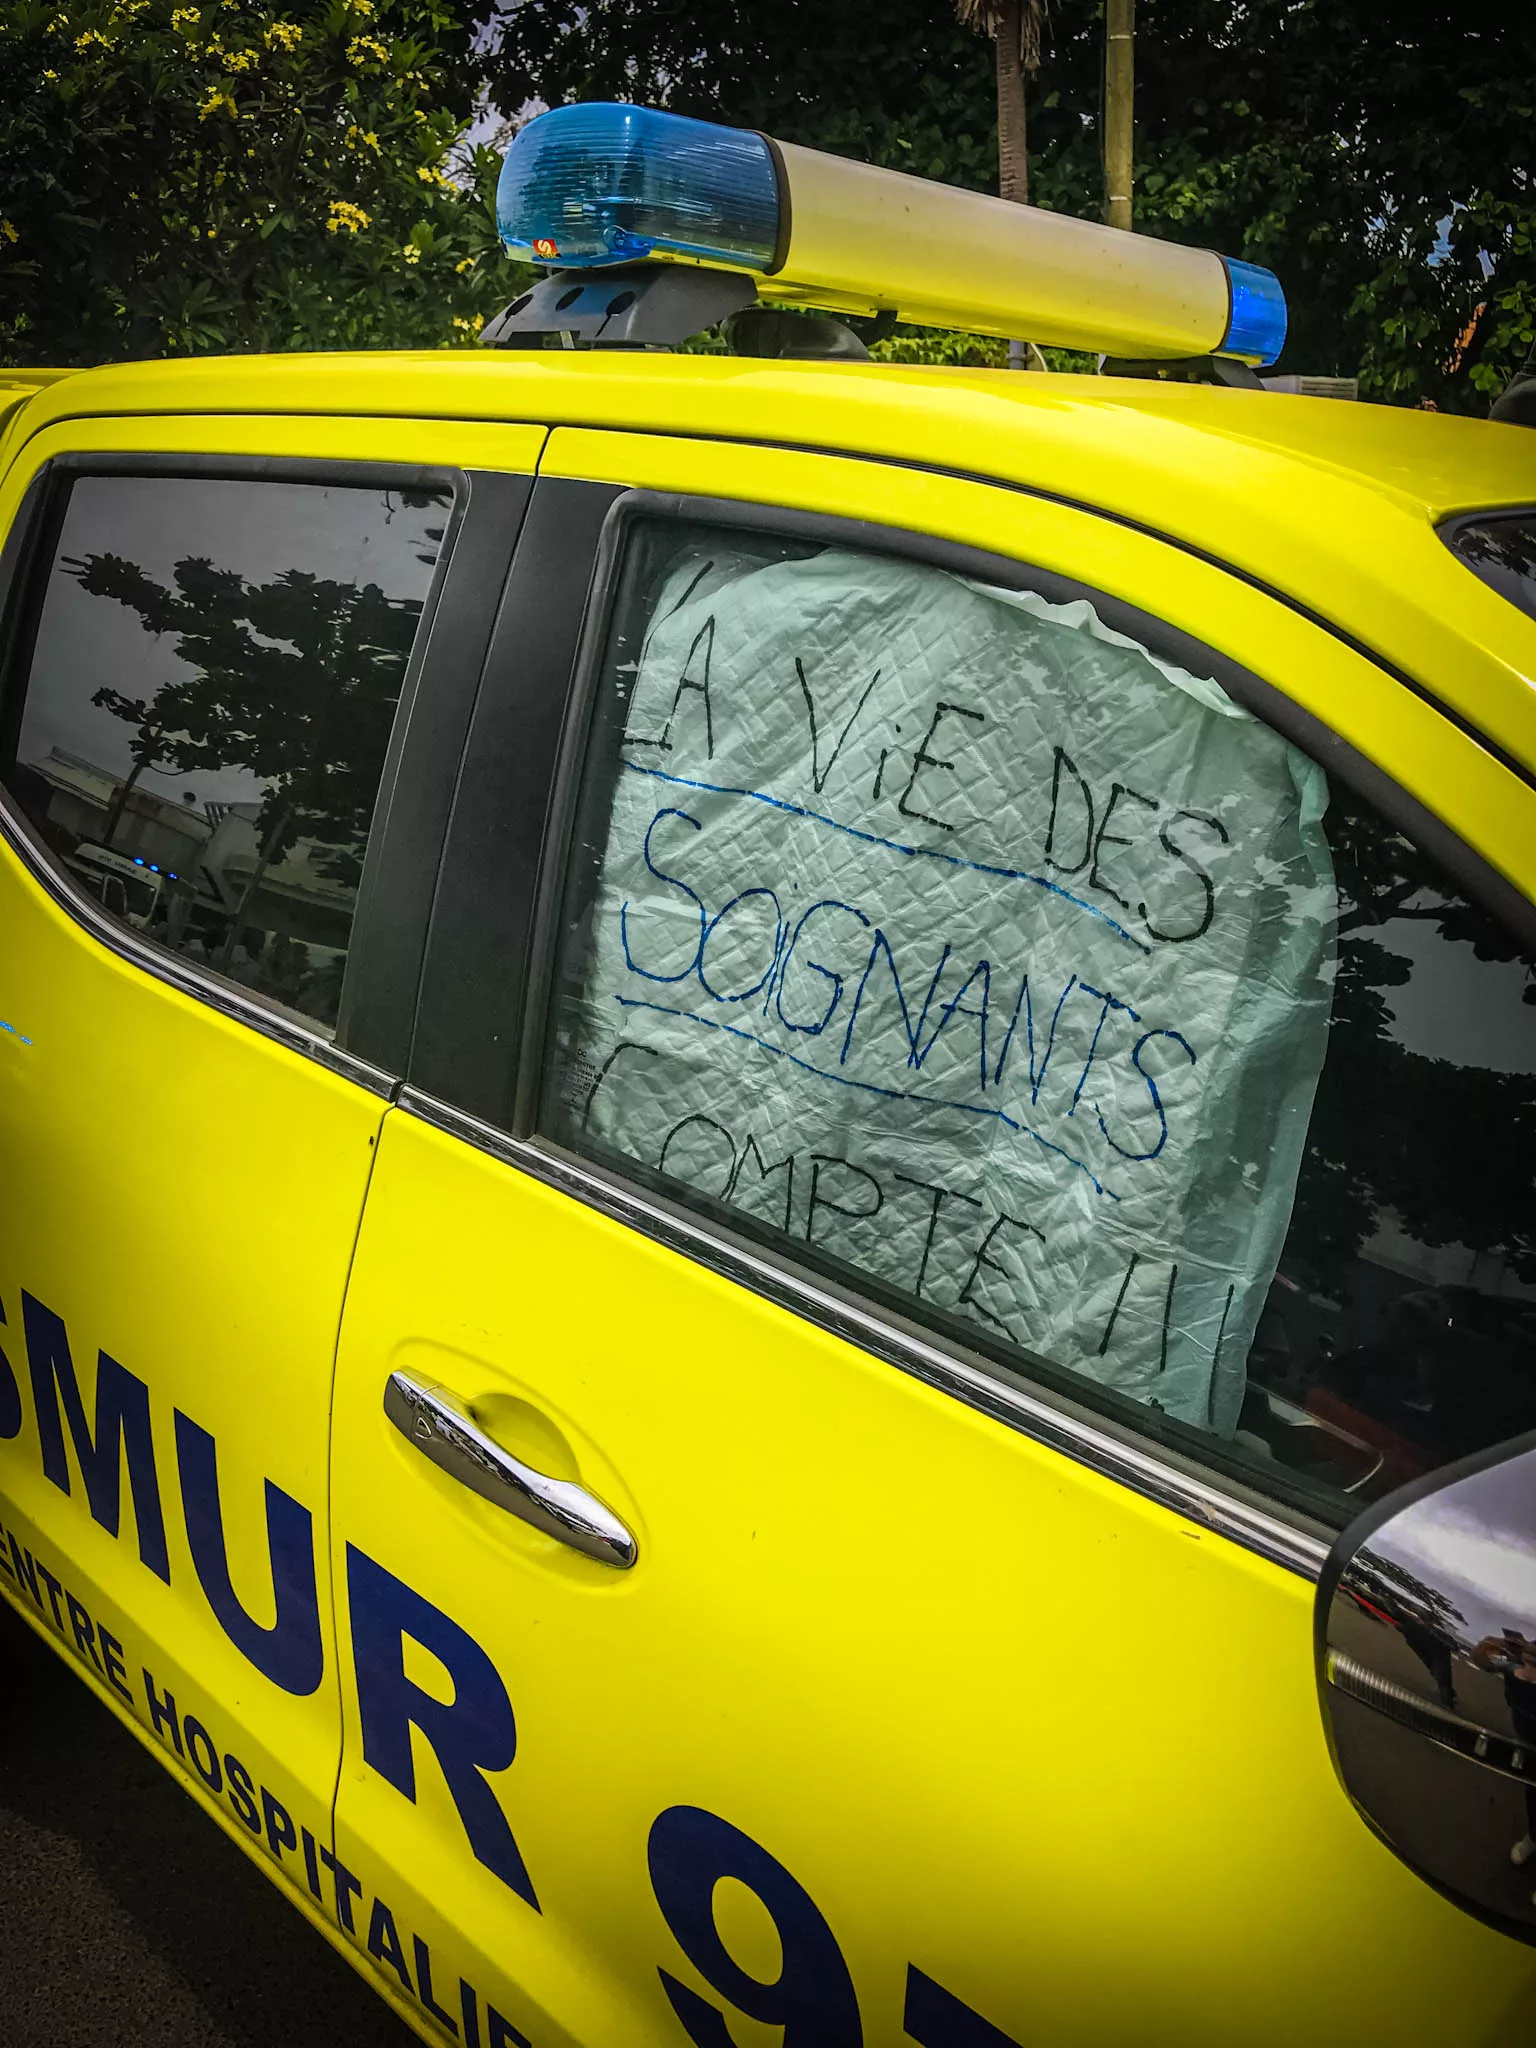 LA ViE DES
SOiGNANTS
COMPTE !!!
SMUR 97
CENTRE HOSPITALIE